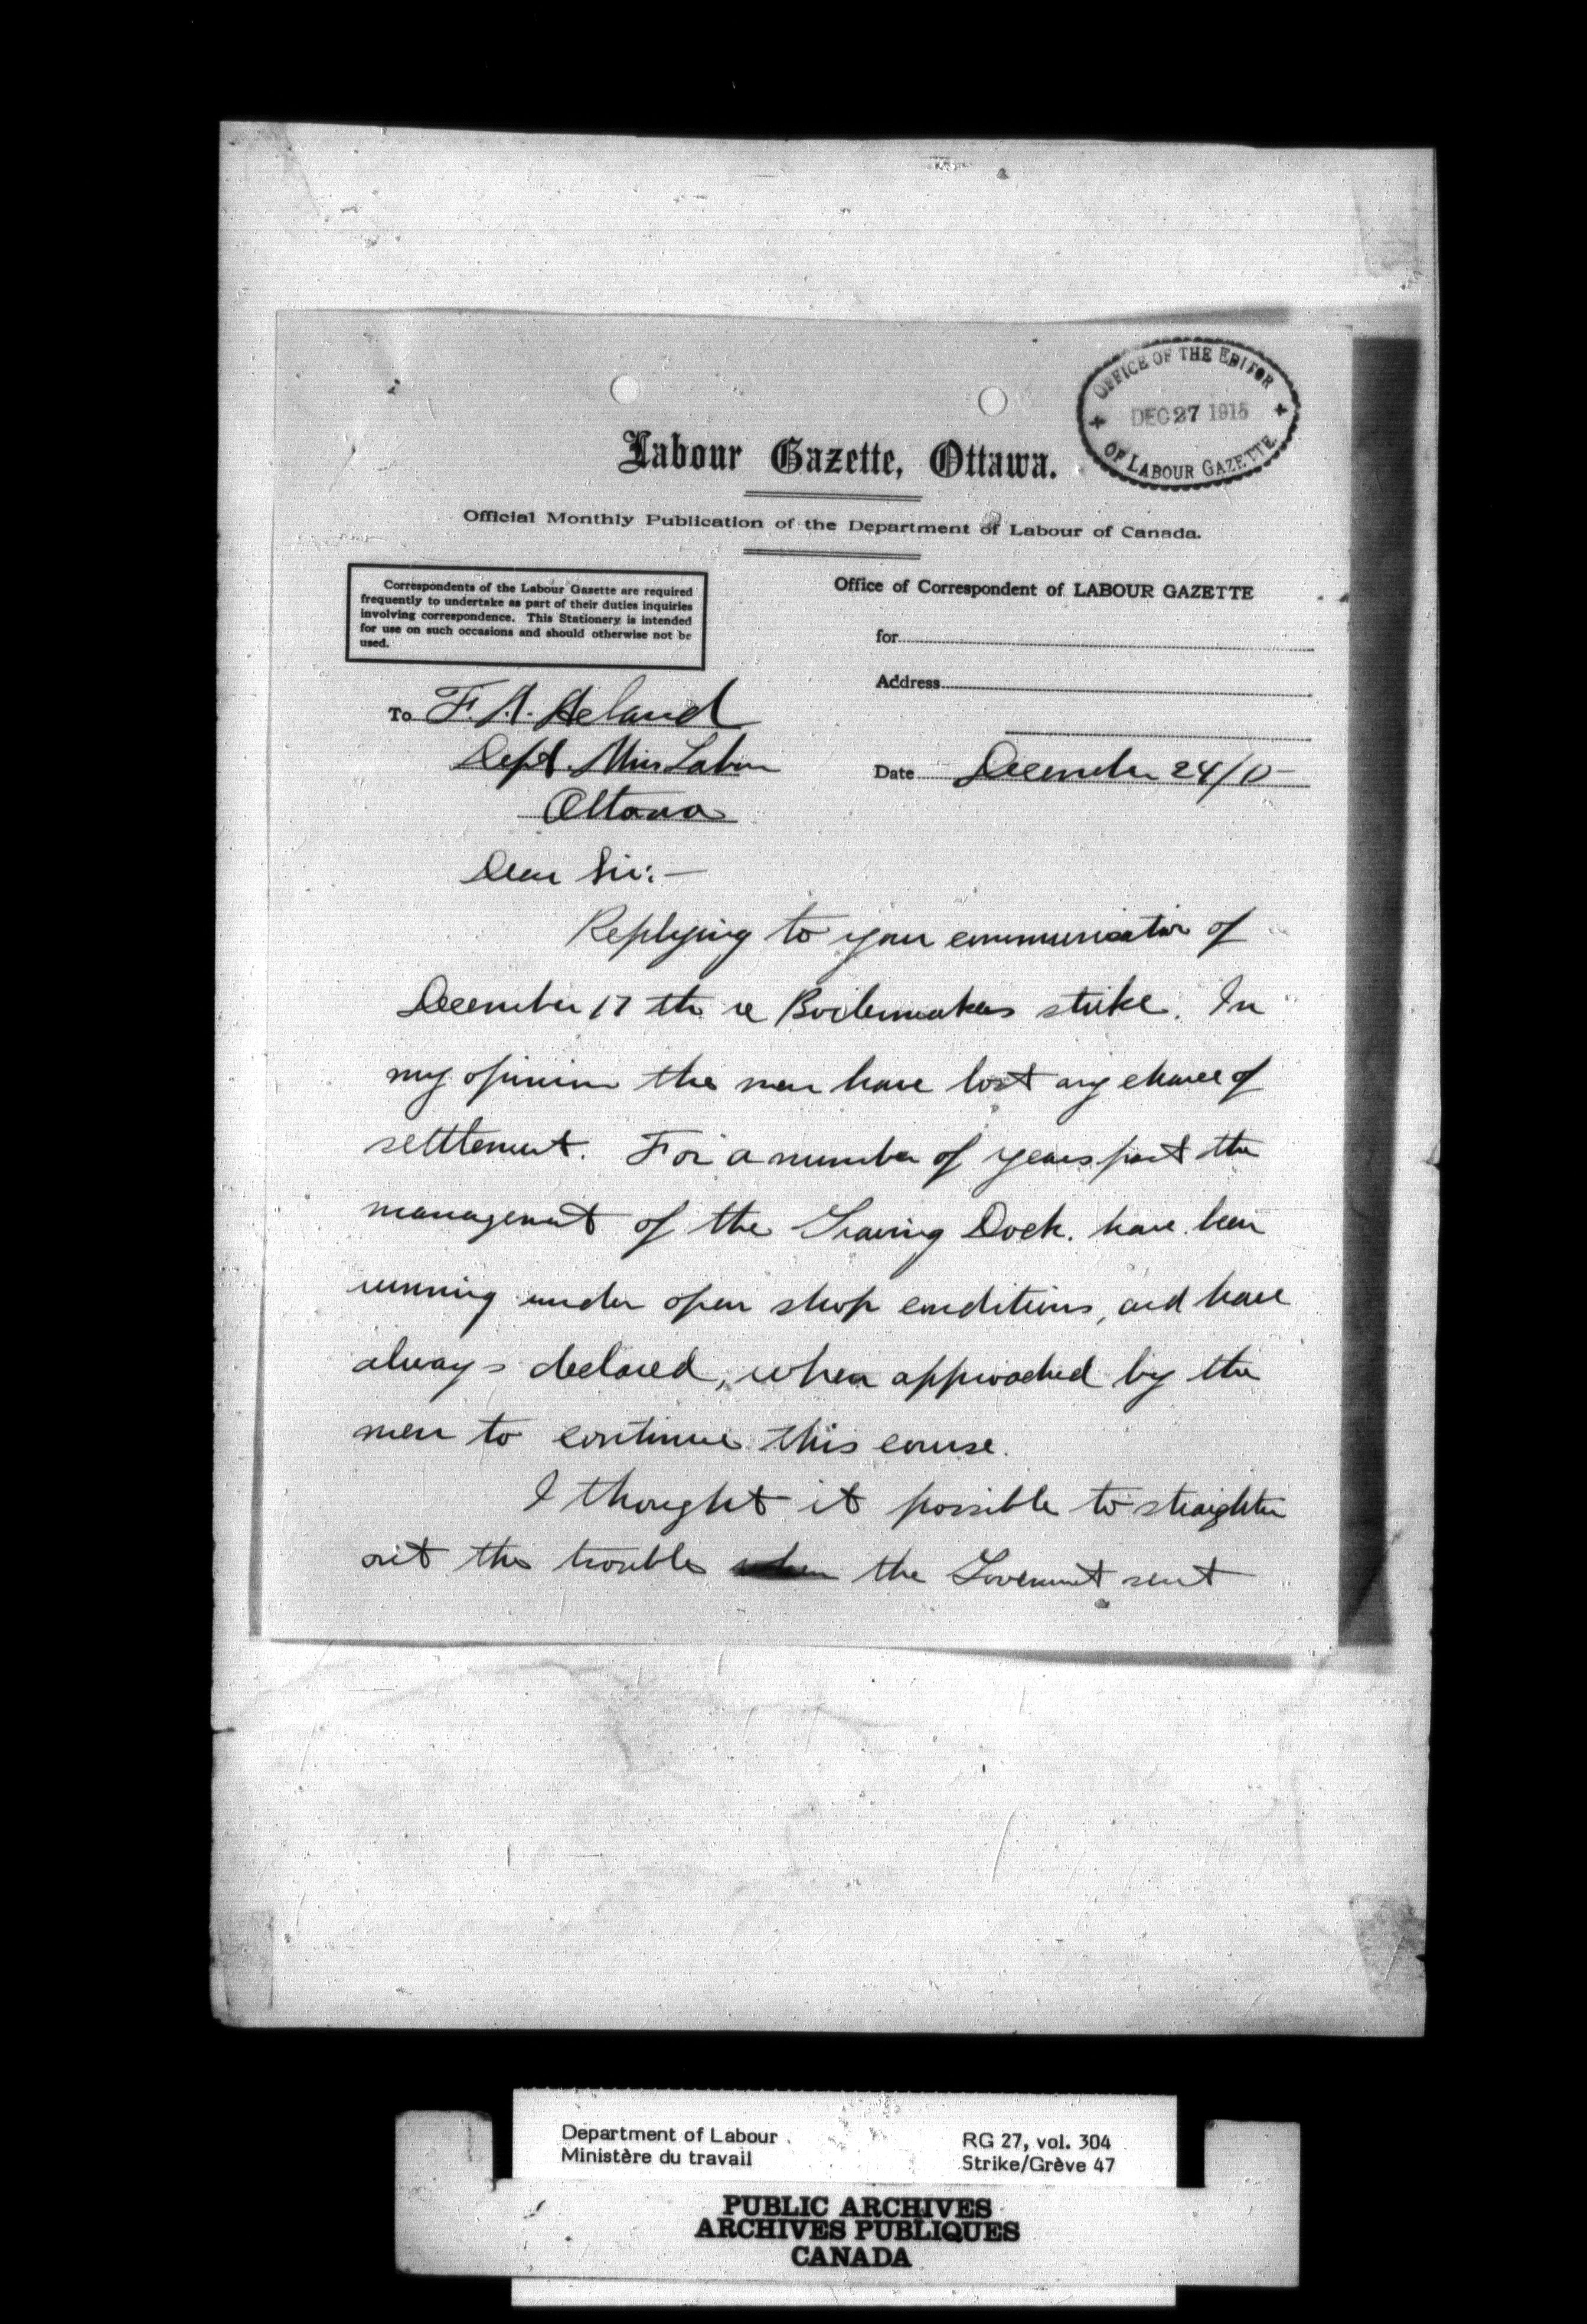 OFFICE OF THE EDITOR
DEC 27 1915
OF LABOUR GAZETTE
Labour Gazette, Ottawa.
Official Monthly Publication of the Department of Labour of Canada.
Correspondents of the Labour Gazette are required
frequently to undertake as part of their duties inquiries
involving correspondence. This Stationery is intended
for use on such occasions and should otherwise not be
used.
Office of Correspondent of LABOUR GAZETTE
for
Address
To F. A. Acland
Dept. Min Labor
Ottawa
Date December 24/15
Dear Sir:—
Replying to your communication of
December 17 th re Boilermakers strike. In
my opinion the men have lost any chance of
settlement. For a number of years past the
management of the Graving Dock. have been
running under open shop conditions, and have
always declared, when approached by the
men to continue this course.
I thought it possible to straighten
out this trouble when the Goverment sent
Department of Labour
Ministère du travail
RG 27, vol. 304
Strike/Grève 47
PUBLIC ARCHIVES
ARCHIVES PUBLIQUES
CANADA